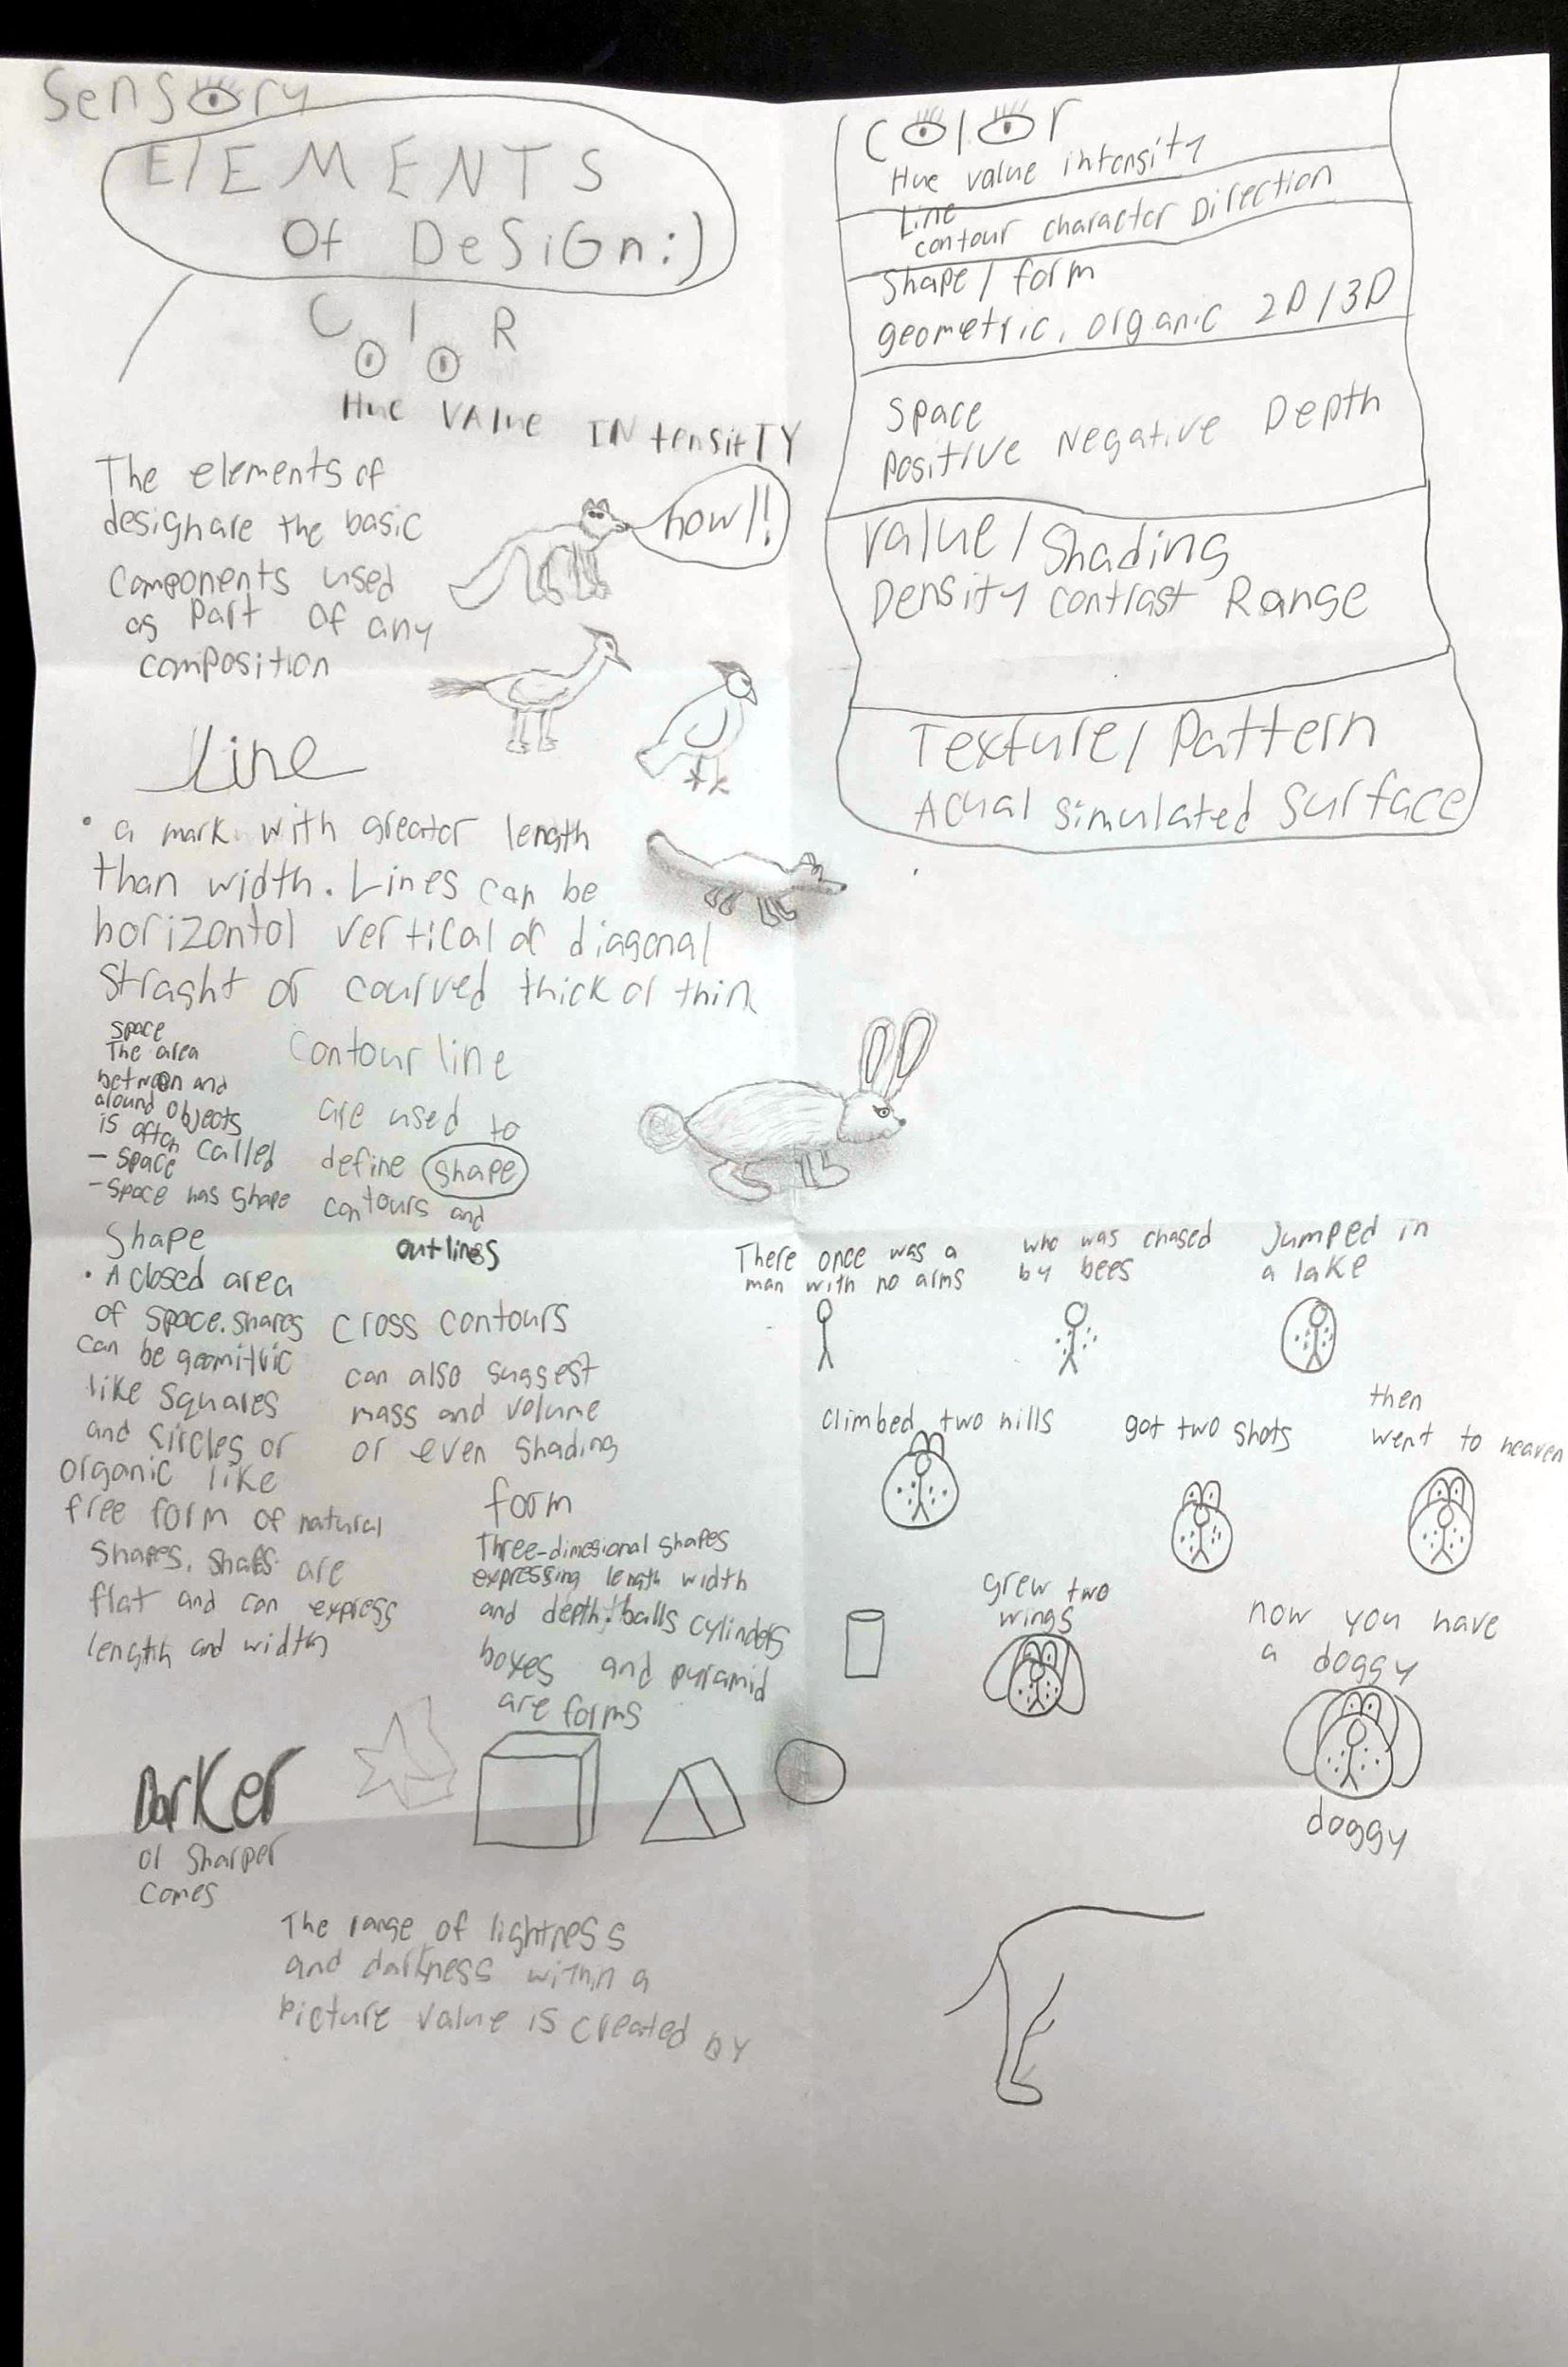 Sensory
ElEMENTS
Of DeSiGn:)
ColoR
Hue VAlue INtensitTY
The elements of
design are the basic
components used
as part of any
composition
howl!
Line
• a mark with greator length
than width. Lines can be
horizontol vertical or diagonal
Straght or courved thick or thin
space
The area
between and
around objects
is often called
- space
- space has shape
Contour line
are used to
define shape
contours and
outlines
Shape
• A closed area
of space. shares
can be geomitric
like squares
and sircles or
organic like
free form of natural
shapes. shaps are
flat and can express
length and width
cross contours
can also suggest
mass and volume
or even shading
form
Three-dimesional shapes
expressing length width
and depth. balls cylinders
boxes and pyramid
are forms
Darker
or sharper
comes
The range of lightness
and darkness within a
picture value is created by
Color
Hue value intensity
Line
contour character Direction
Shape / form
geometric, organic 2D/3D
Space
positive Negative Depth
Value / Shading
Density contrast Range
Texture / Pattern
Acual simulated surface
There once was a
man with no arms
who was chased
by bees
Jumped in
a lake
climbed two hills
got two shots
then
went to heaven
grew two
wings
now you have
a doggy
doggy